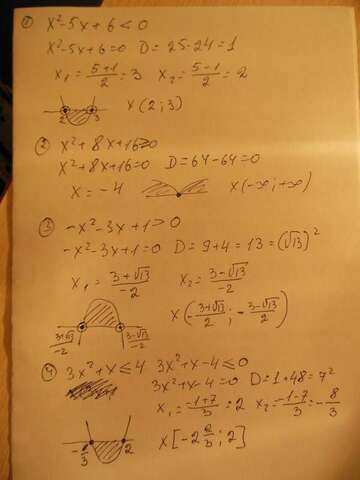 ① x²-5x+6<0
x²-5x+6=0 D=25-24=1
x₁=(5+1)/2=3 x₂=(5-1)/2=2
2 3 x(2;3)
② x²+8x+16≥0
x²+8x+16=0 D=64-64=0
x=-4 x(-∞;+∞)
③ -x²-3x+1>0
-x²-3x+1=0 D=9+4=13=(√13)²
x₁=(3+√13)/-2 x₂=(3-√13)/-2
x(-(3+√13)/2;-(3-√13)/2)
(3+√13)/-2 (3-√13)/-2
④ 3x²+x≤4 3x²+x-4≤0
3x²+x-4=0 D=1+48=7²
x₁=(-1+7)/3=2 x₂=(-1-7)/3=-8/3
-8/3 2 x[-2 2/3;2]